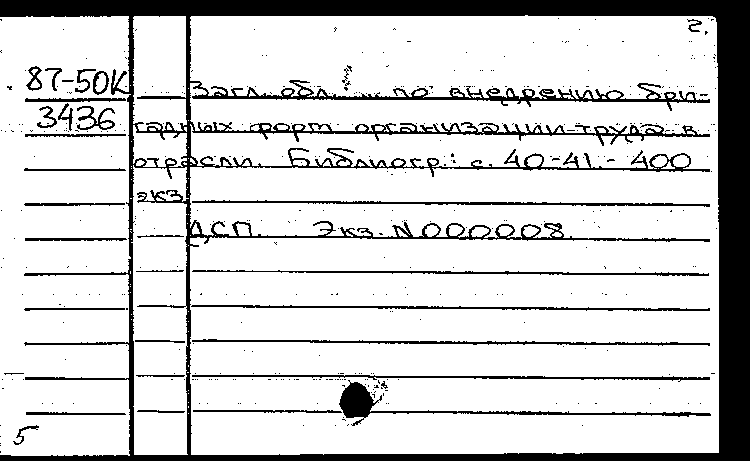 2.
87-50К Загл. обл. ... по внедрению бри-
3436 гадных форм организации труда в
отрасли. Библиогр.: с. 40-41.- 400
экз.
ДСП. Экз. N000008.
5